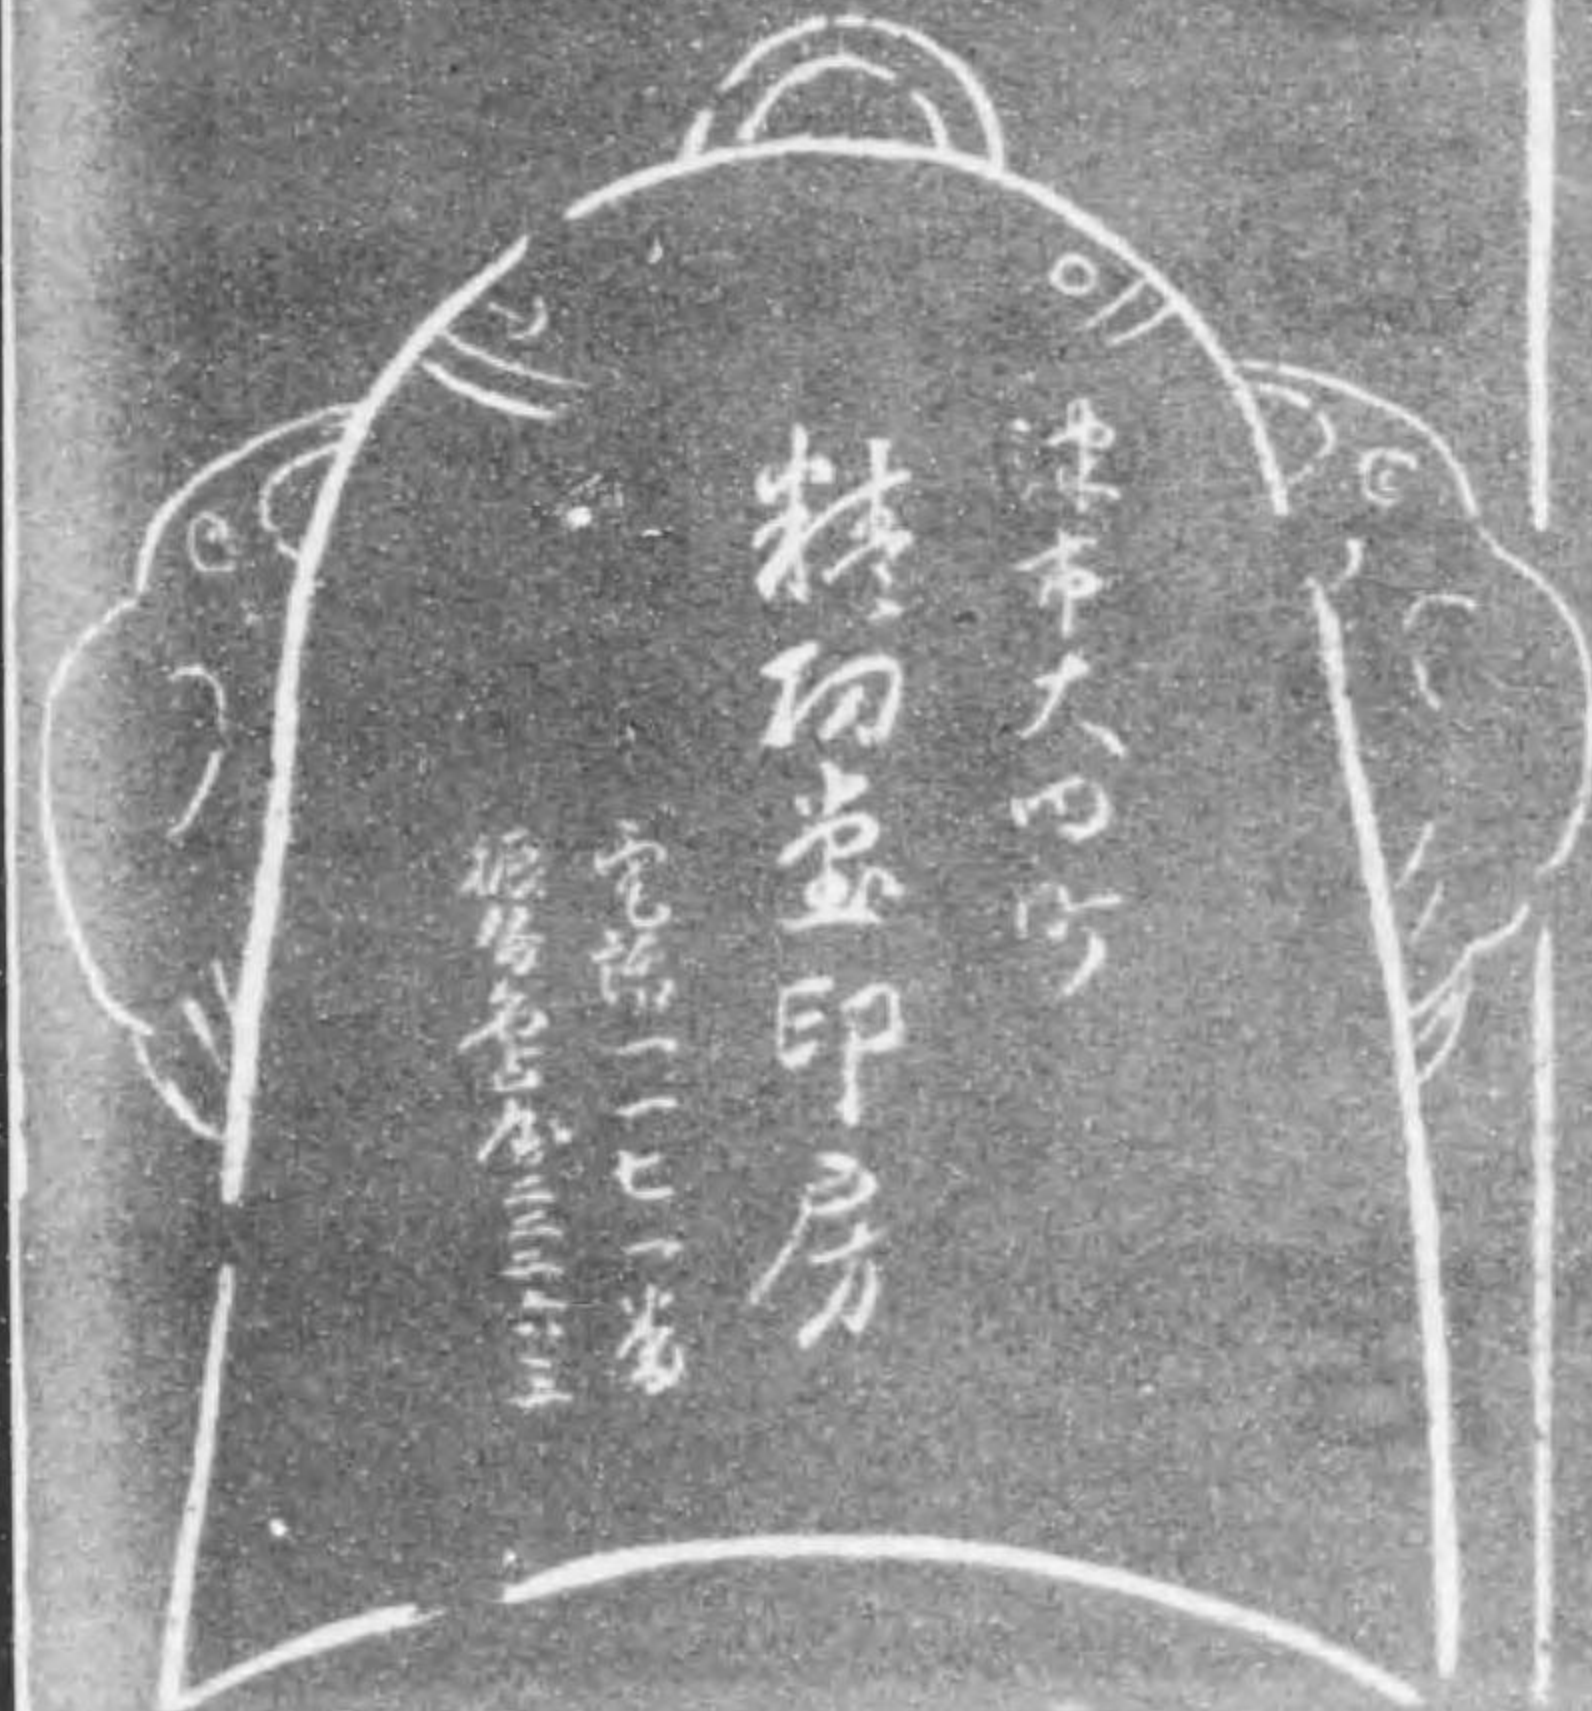 津市大門町
精版堂印房
電話一一七一番
振替名古屋二三三六三